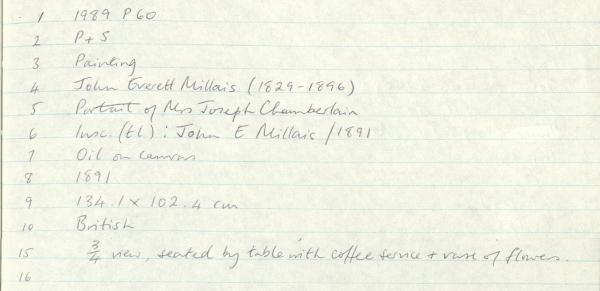 1 1989 P60
2 P + S
3 Painting
4 John Everett Millais (1829-1896)
5 Portrait of Mrs Joseph Chamberlain
6 Insc. (tl) : John E Millais / 1891
7 Oil on canvas
8 1891
9 134.1 x 102.4 cm
10 British
15 3/4 view, seated by table with coffee service + vase of flowers.
16